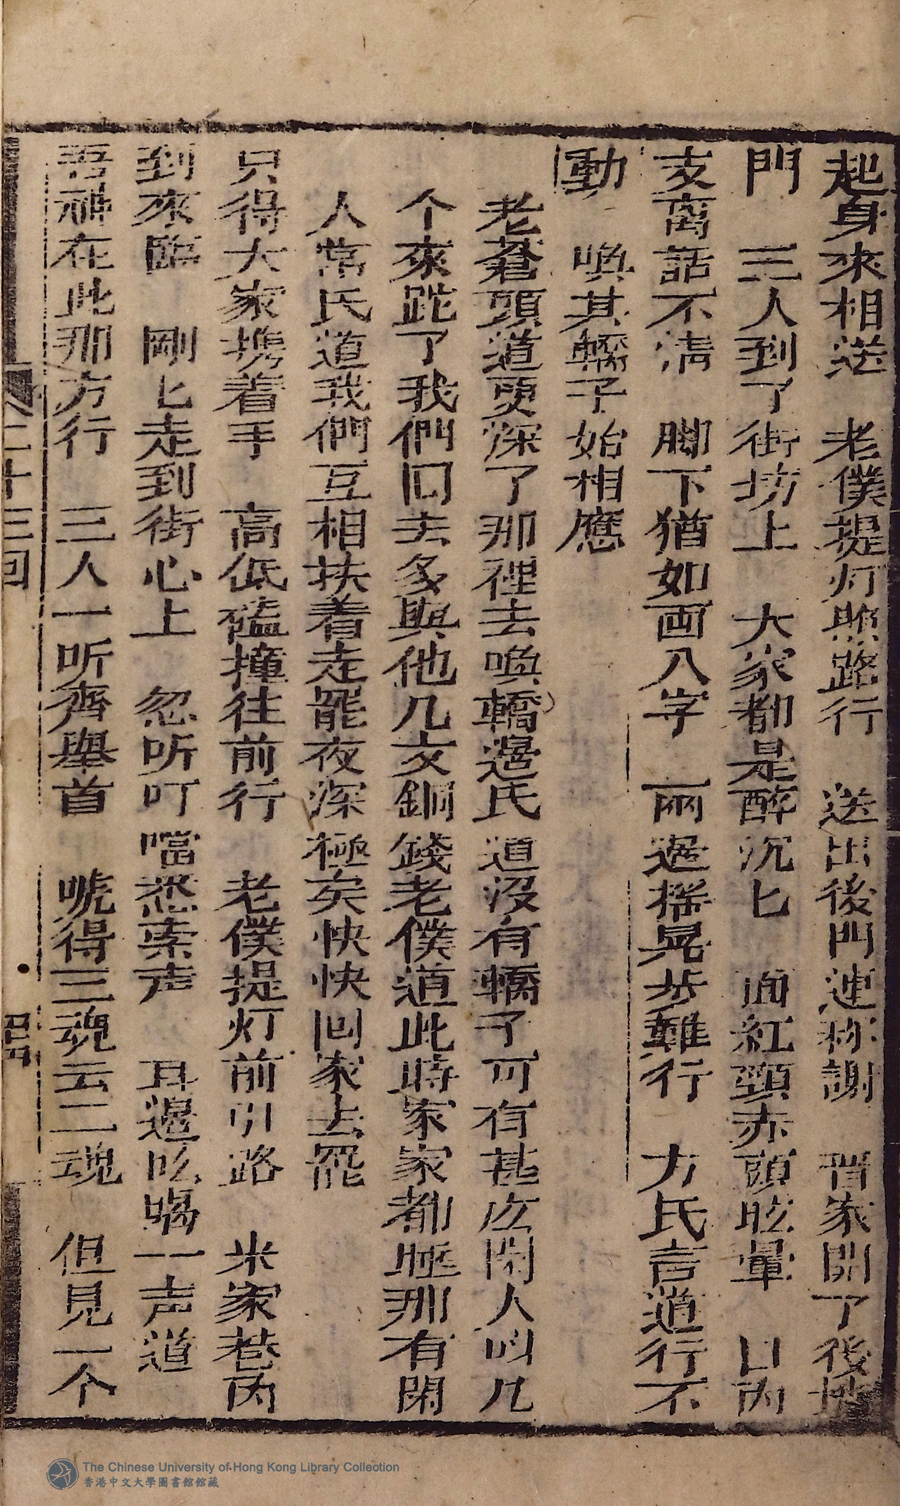 起身來相送　老僕提灯照路行　送出後門連称謝　晋家開了後墻
門　三人到了街坊上　大家都是醉沉匕　面紅頸赤頭眩暈　口內
支离話不清　脚下猶如画八字　一兩邊搖晃步難行　方氏言道行不
動　喚其轎子始相應
老蒼頭道更深了那裡去喚轎邊氏道没有轎子可有甚庅閑人叫几
个來跎了我們囘去多與他几文銅錢老僕道此時家家都睡那有閑
人常氏道我們互相扶着走罷夜深極矣快快回家去罷
只得大家携着手　高低磕撞往前行　老僕提灯前引路　米家巷內
到來臨　剛匕走到街心上　忽听叮噹悉索声　耳邊吆喝一声道
吾神在此那方行　三人一听齊舉首　唬得三魂云二魂　但見一个
二十三回
The Chinese University of Hong Kong Library Collection
香港中文大學圖書館館藏